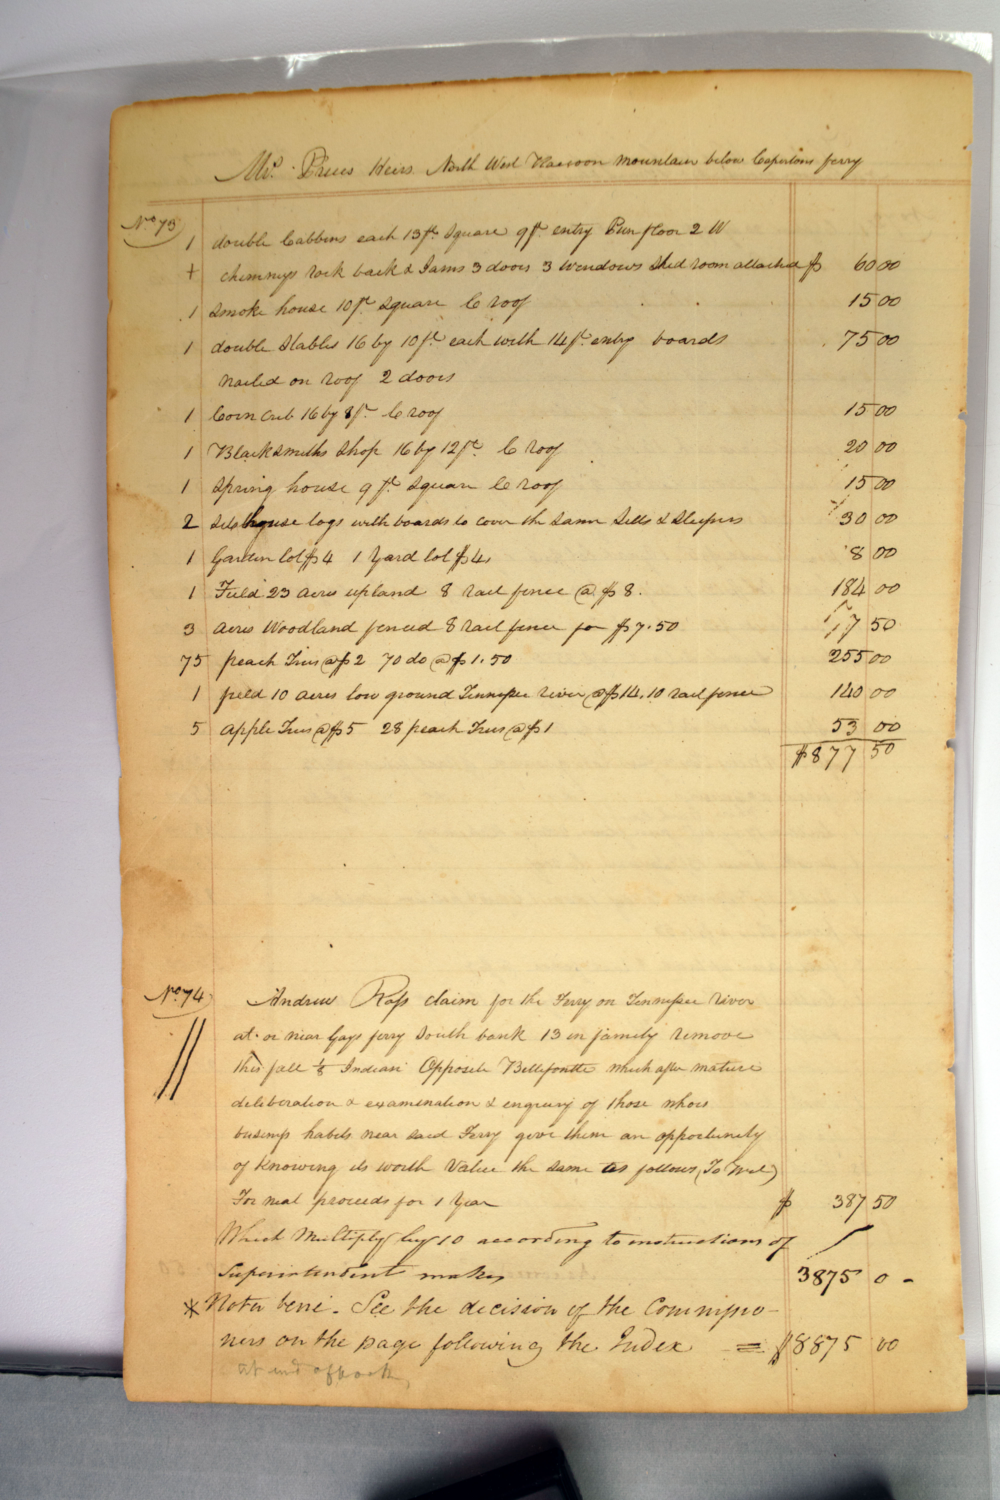 Mr. Prices Heirs North West Raccoon Mountain below Capertons ferry
No 73
1 double Cabbins each 13 ft. square 9 ft. entry Pun floor 2 W
+ chimneys rock back & Jams 3 doors 3 windows Shed room attached $ 60 00
1 Smoke house 10 ft square C roof 15 00
1 double Stables 16 by 10 ft. each with 14 ft. entry boards 75 00
nailed on roof 2 doors
1 Corn Crib 16 by 8 ft. C roof 15 00
1 Blacksmiths Shop 16 by 12 ft. C roof 20 00
1 Spring house 9 ft. Square C roof 15 00
2 house logs with boards to cover the same Sills & Sleepers 30 00
1 Garden lot $4 1 Yard lot $4 8 00
1 Field 23 acres upland 8 rail fence @ $8. 184 00
3 acres Woodland fenced 8 rail fence for $7.50 17 50
75 peach Trees @ $2 70 do @ $1.50 255 00
1 field 10 acres low ground Tennessee River @ $14. 10 rail fence 140 00
5 apple Trees @ $5 28 peach Trees @ $1 53 00
$877 50
No 74
Andrew Ross claim for the Ferry on Tennessee River
at or near Gays ferry South bank 13 in family remove
this fall 1/8 Indian Opposite Bellefonte which after mature
deliberation & examination & enquiry of those whose
business habits near said Ferry give them an opportunity
of Knowing its worth Value the same as follows (To Wit)
For neat proceeds for 1 Year $ 387 50
Which Multiply by 10 according to instructions of
Superintendent makes 3875 0 -
* Nota bene. See the decision of the Commissio-
ners on the page following the Index = $8875 00
at end of book